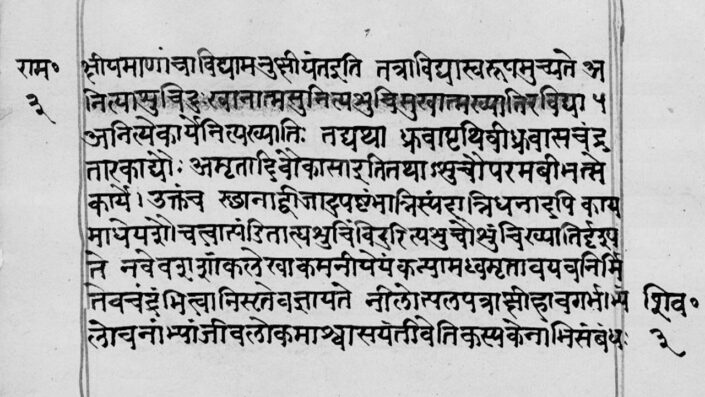 राम॰ क्षीयमाणांचाविद्यामनुक्षीयंतइति तत्राविद्यास्वरूपमुच्यते अ
३ नित्याशुचिदुःखानात्मसुनित्यशुचिसुखात्मख्यातिरविद्या ५
अनित्येकार्येनित्यख्यातिः तद्यथा ध्रुवापृथिवीध्रुवासचंद्र
तारकाद्यौः अमृतादिवौकासाइतितथाऽशुचौपरमबीभत्से
काये। उक्तंच स्छानाद्बीजादुपष्टंभान्निस्यंदान्निधनादपि काय
माधेयशौचत्वात्पंडिताह्यशुचिंविदुरित्यशुचौशुचिख्यातिर्दृश्य
ते नवेवशशांकलेखाकमनीयेयंकन्यामध्वमृतावयवनिर्मि
तेवचंद्रंभित्वानिसृतेवज्ञायते नीलोत्पलपत्राक्षीहावगर्भाभ्यां शिव॰
लोचनाभ्यांजीवलोकमाश्वासयंतीवेतिकस्यकेनाभिसंबंधः ३